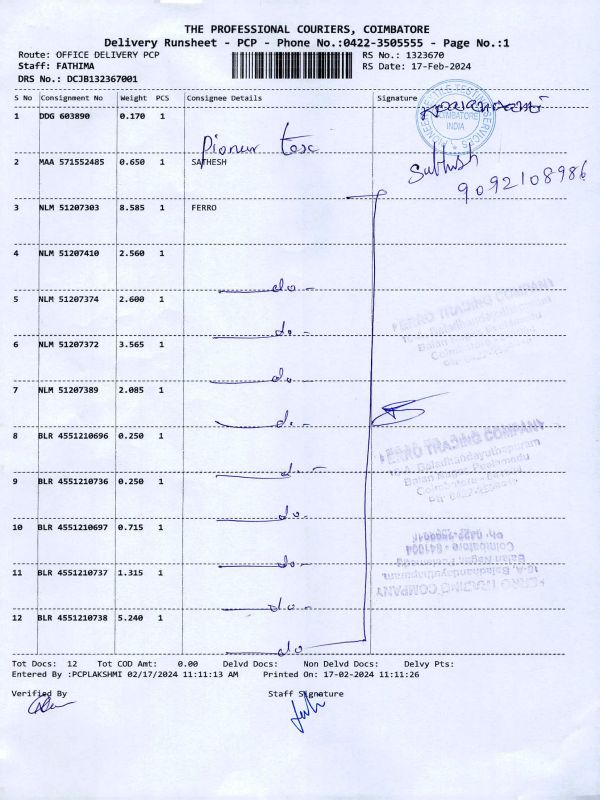 THE PROFESSIONAL COURIERS, COIMBATORE
Delivery Runsheet - PCP - Phone No.:0422-3505555 - Page No.:1
Route: OFFICE DELIVERY PCP RS No.: 1323670
Staff: FATHIMA RS Date: 17-Feb-2024
DRS No.: DCJB132367001
S No Consignment No Weight PCS Consignee Details Signature
1 DDG 603890 0.170 1
COIMBATORE
INDIA
Pioneer tex
2 MAA 571552485 0.650 1 SATHESH
Sathish
9092108986
3 NLM 51207303 8.585 1 FERRO
4 NLM 51207410 2.560 1
do
5 NLM 51207374 2.600 1
FERRO TRADING COMPANY
do
6 NLM 51207372 3.565 1
do
7 NLM 51207389 2.085 1
do
8 BLR 4551210696 0.250 1
FERRO TRADING COMPANY
do
9 BLR 4551210736 0.250 1
do
10 BLR 4551210697 0.715 1
do
11 BLR 4551210737 1.315 1
FERRO TRADING COMPANY
do
12 BLR 4551210738 5.240 1
do
Tot Docs: 12 Tot COD Amt: 0.00 Delvd Docs: Non Delvd Docs: Delvy Pts:
Entered By :PCPLAKSHMI 02/17/2024 11:11:13 AM Printed On: 17-02-2024 11:11:26
Verified By Staff Signature